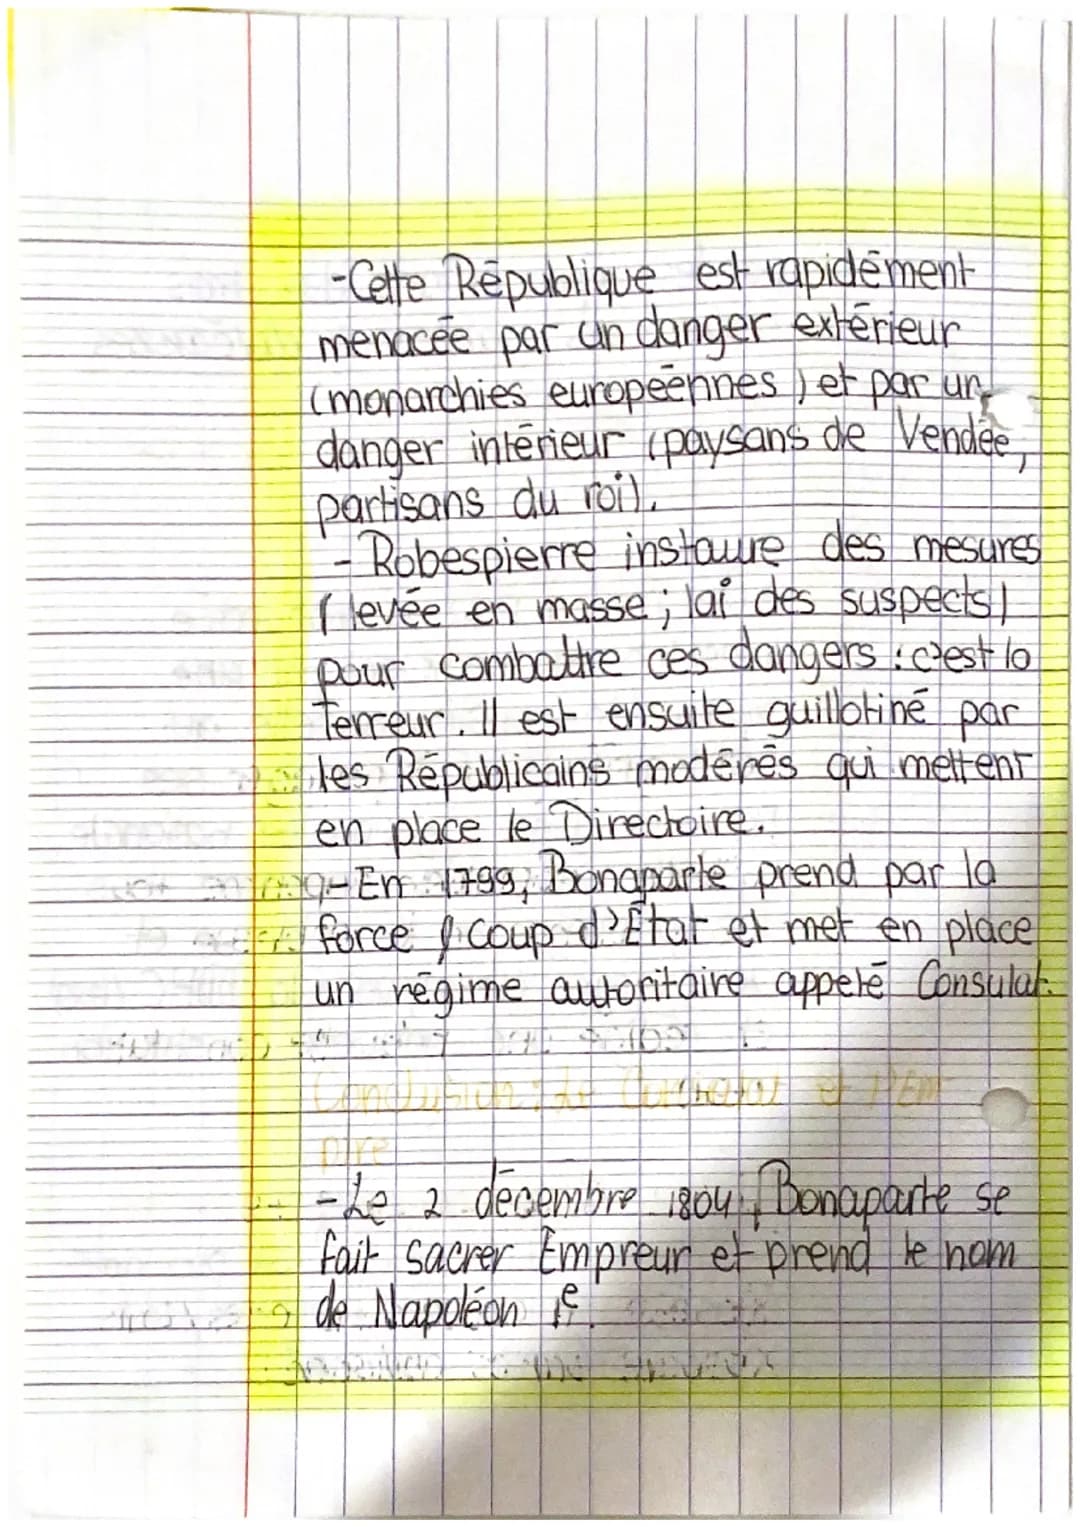 -Cette République est rapidément
menacée par un danger extérieur
(monarchies européennes) et par un
danger intérieur (paysans de Vendée,
partisans du roi).
- Robespierre instaure des mesures
(levée en masse; loi des suspects)
pour combattre ces dangers : c'est la
Terreur. Il est ensuite guillotiné par
les Républicains modérés qui mettent
en place le Directoire.
-En 1799, Bonaparte prend par la
force / coup d'État et met en place
un régime autoritaire appelé Consulat.
Conclusion : Le Consulat et l'Em
pire
-Le 2 décembre 1804, Bonaparte se
fait sacrer Empreur et prend le nom
de Napoléon 1e.